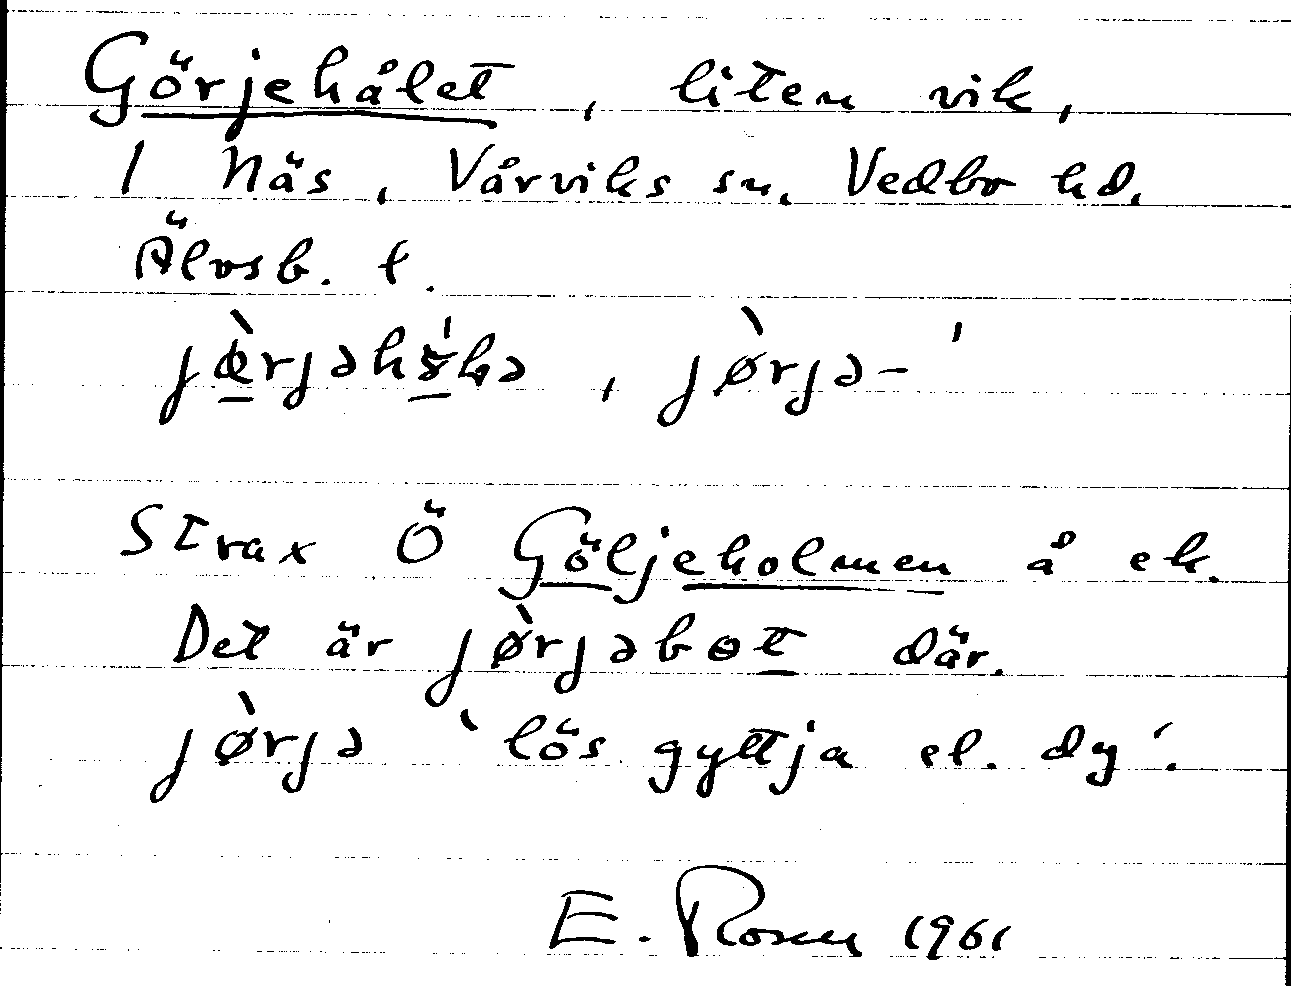 Görjehålet, liten vik,
I Näs, Vårviks sn, Vedbo hd,
Älvsb. l.
jœ̀rjəhɔ́lə, jø̀rjə-´
Strax Ö Göljeholmen å ek.
Det är jø̀rjəbot där.
jø̀rjə ‘lös gyttja el. dy’.
E. Rosen 1961